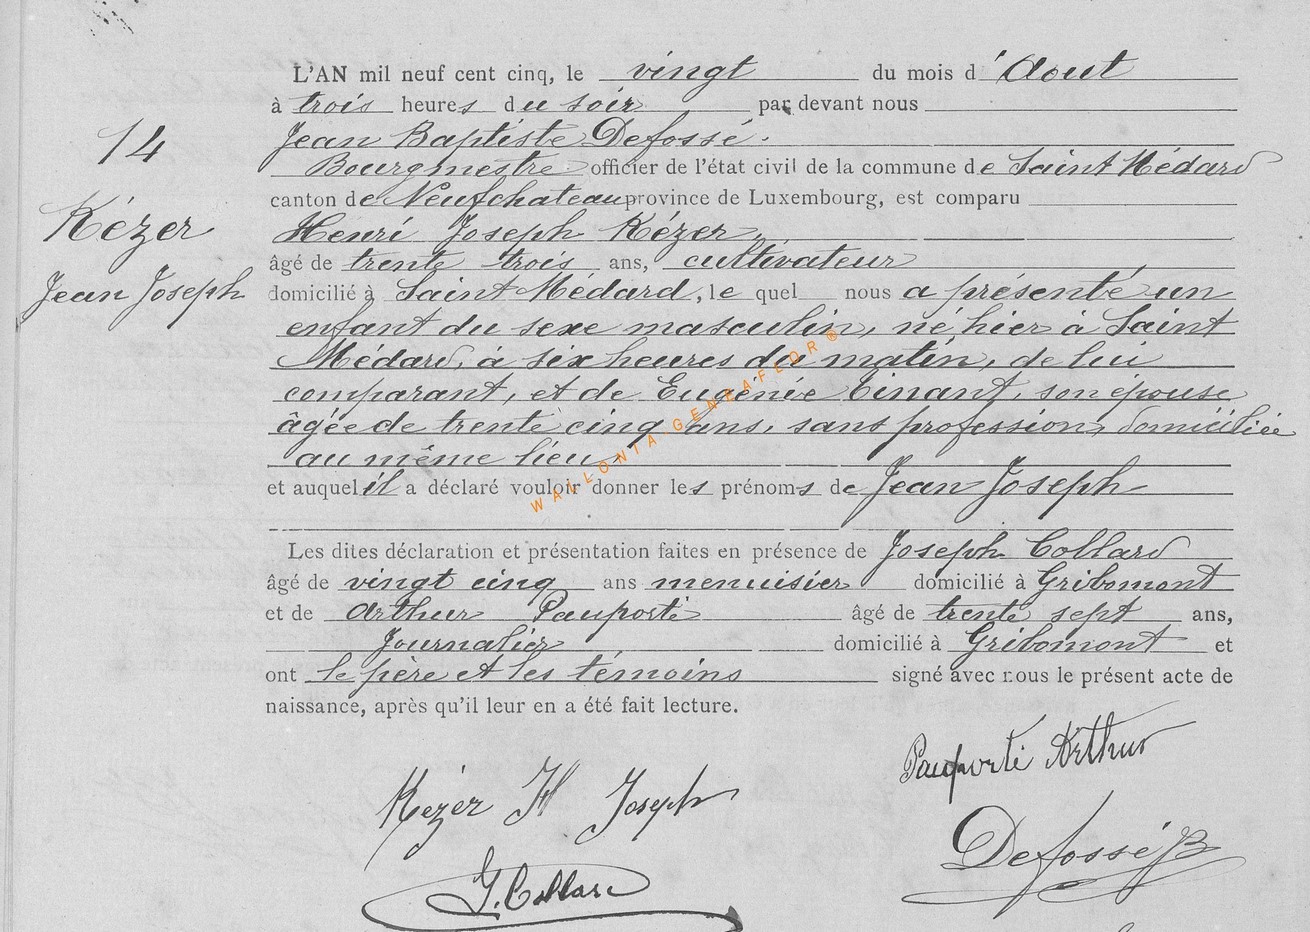 L'AN mil neuf cent cinq, le vingt du mois d'Aout
à trois heures du soir par devant nous
Jean Baptiste Defossé.
14
Bourgmestre officier de l'état civil de la commune de Saint Médard
canton de Neufchateau province de Luxembourg, est comparu
Kézer
Henri Joseph Kézer,
âgé de trente trois ans, cultivateur
Jean Joseph
domicilié à Saint Médard, le quel nous a présenté un
enfant du sexe masculin, né hier à Saint
Médard, à six heures du matin, de lui
comparant, et de Eugénie Tinant, son épouse
âgée de trente cinq ans, sans profession, domiciliée
au même lieu,
WALLONIA-GENEAFEDR®
et auquel il a déclaré vouloir donner les prénoms de Jean Joseph
Les dites déclaration et présentation faites en présence de Joseph Collard
âgé de vingt cinq ans menuisier domicilié à Gribomont
et de Arthur Pauporté âgé de trente sept ans,
Journalier domicilié à Gribomont et
ont le père et les témoins signé avec nous le présent acte de
naissance, après qu'il leur en a été fait lecture.
Pauporté Arthur
Kézer H Joseph
Defossé JB
J. Collard